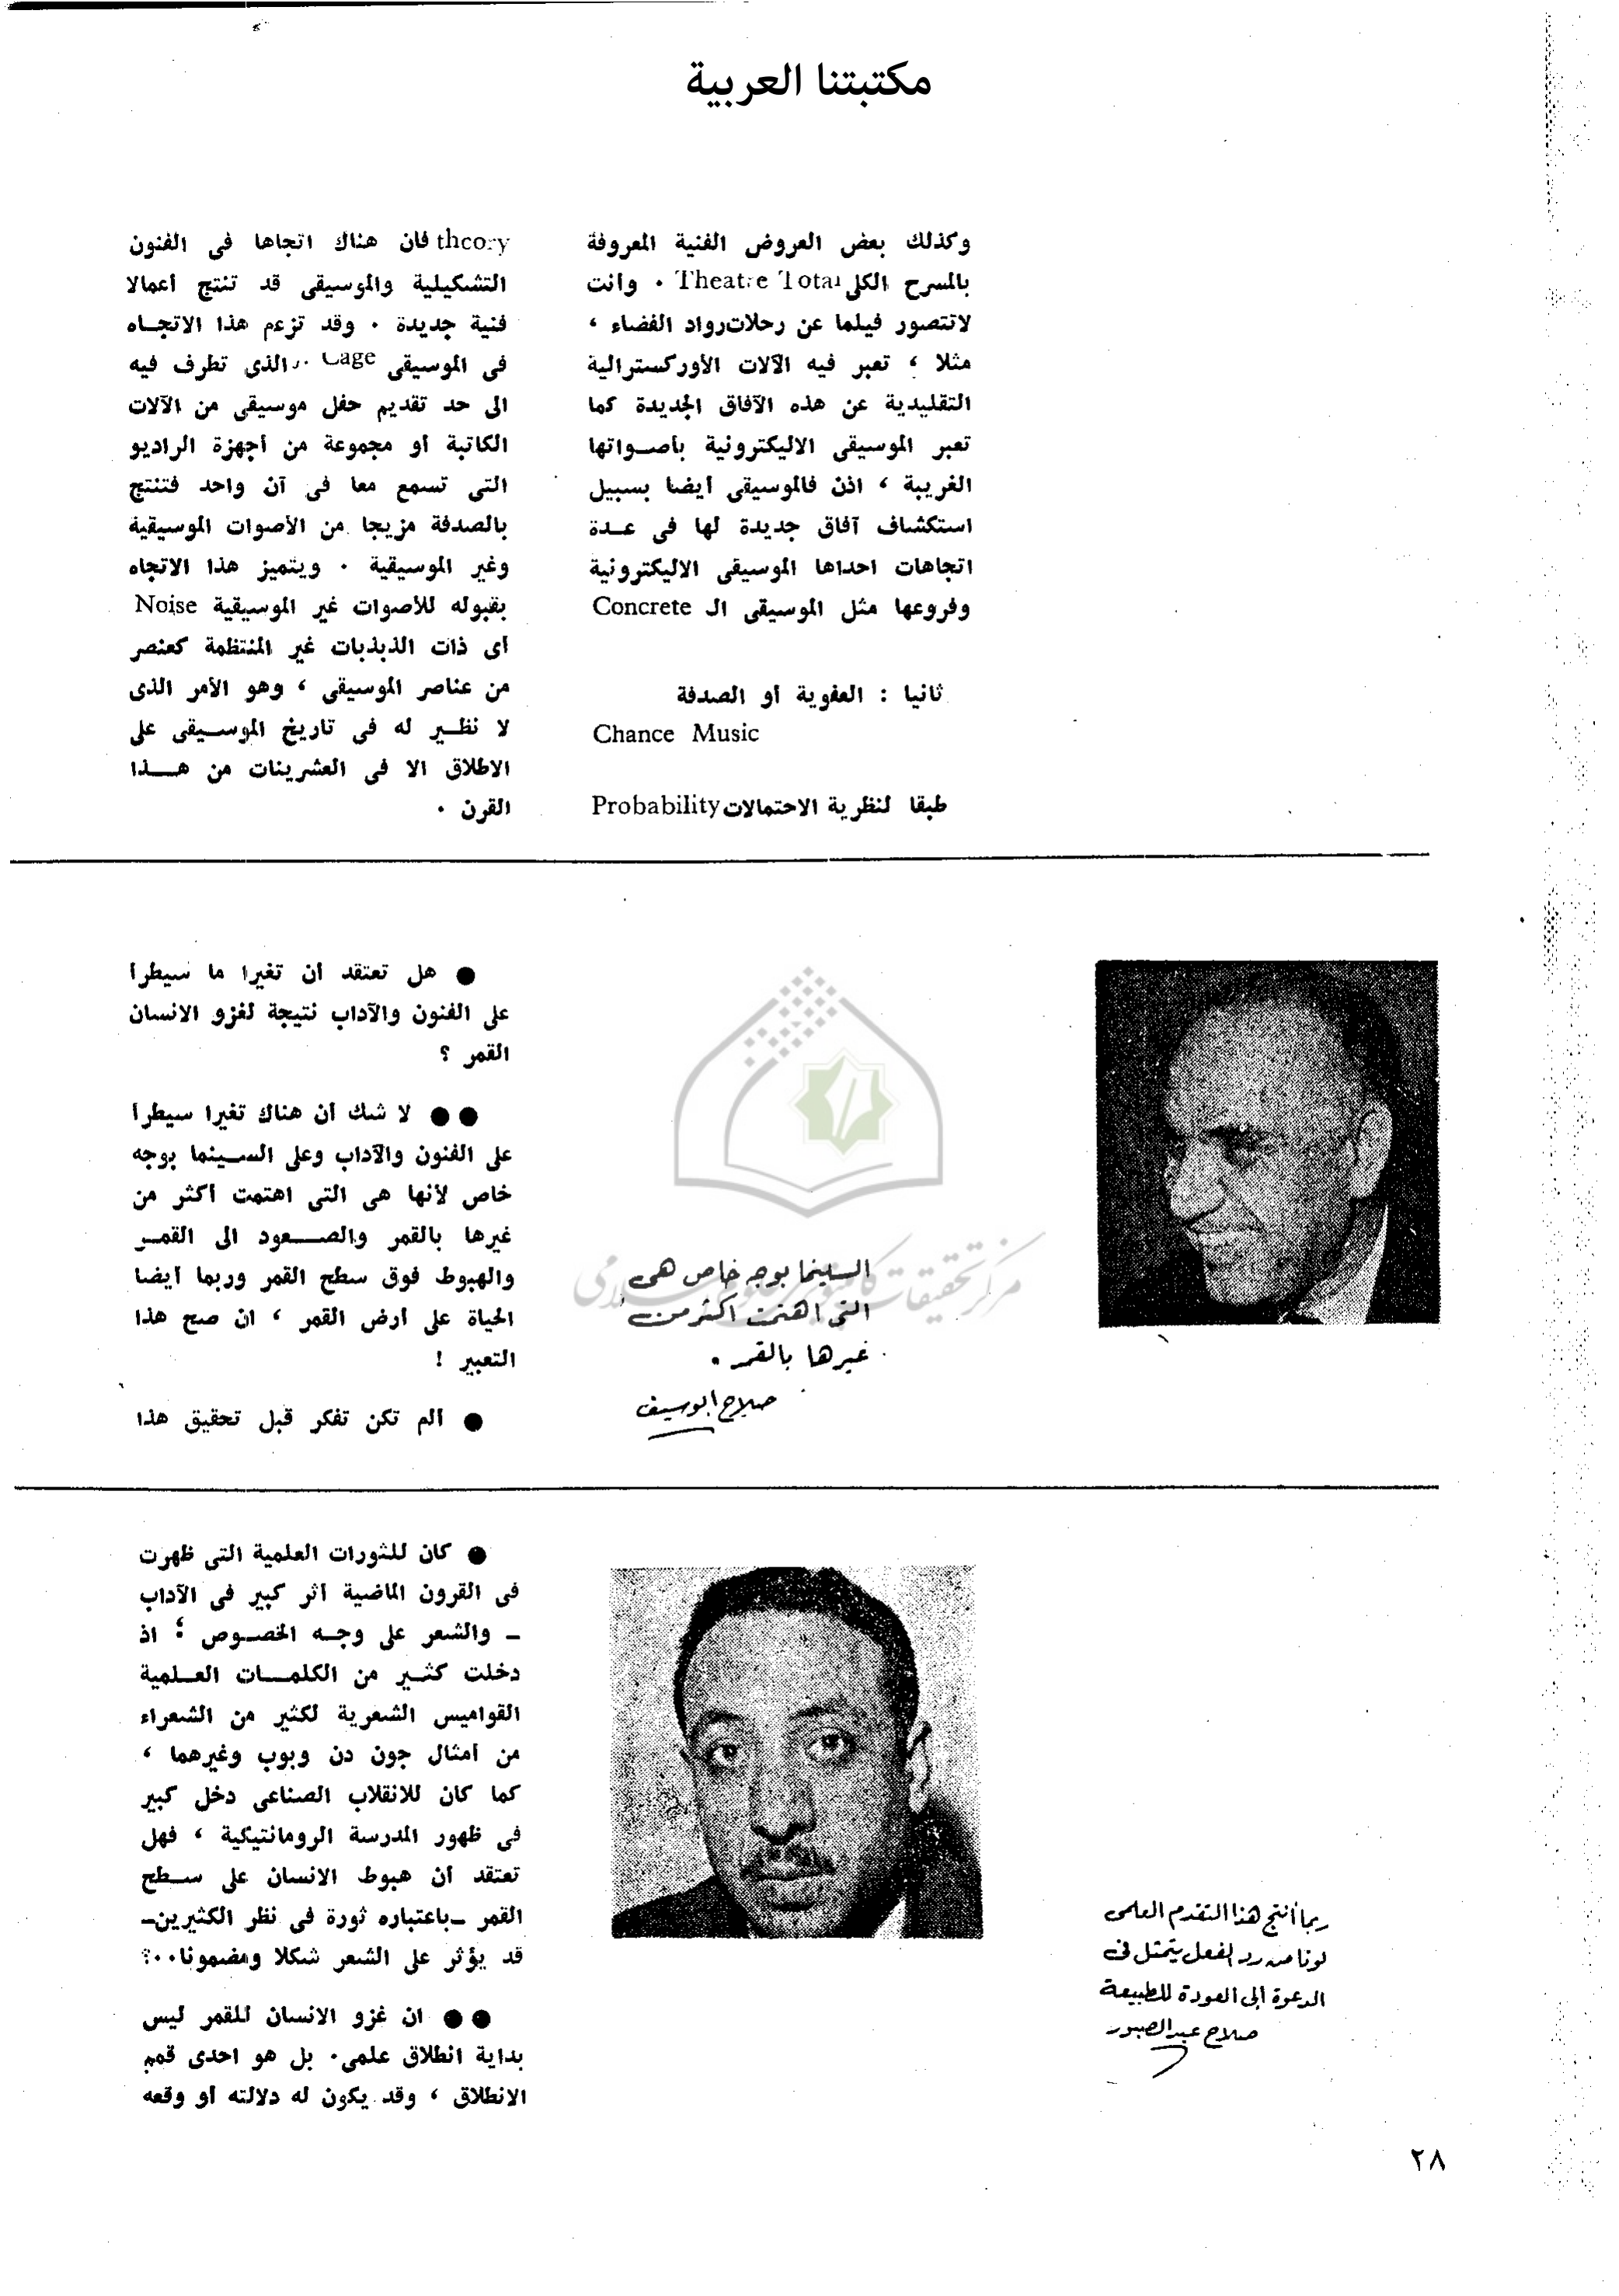 مكتبتنا العربية
وكذلك بعض العروض الفنية المعروفة
بالمسرح الكلى Theatre Total ٠ وانت
لاتتصور فيلما عن رحلات رواد الفضاء ،
مثلا ، تعبر فيه الآلات الأوركسترالية
التقليدية عن هذه الآفاق الجديدة كما
تعبر الموسيقى الاليكترونية بأصـواتها
الغريبة ، اذن فالموسيقى أيضا بسبيل
استكشاف آفاق جديدة لها فى عـدة
اتجاهات احداها الموسيقى الاليكترونية
وفروعها مثل الموسيقى الـ Concrete
ثانيا : العفوية أو الصدفة
Chance Music
طبقا لنظرية الاحتمالات Probability
theory فان هناك اتجاها فى الفنون
التشكيلية والموسيقى قد تنتج أعمالا
فنية جديدة ٠ وقد تزعم هذا الاتجـاه
فى الموسيقى Cage الذى تطرف فيه
الى حد تقديم حفل موسيقى من الآلات
الكاتبة أو مجموعة من أجهزة الراديو
التى تسمع معا فى آن واحد فتنتج
بالصدفة مزيجا من الأصوات الموسيقية
وغير الموسيقية ٠ ويتميز هذا الاتجاه
بقبوله للأصوات غير الموسيقية Noise
أى ذات الذبذبات غير المنتظمة كعنصر
من عناصر الموسيقى ، وهو الأمر الذى
لا نظـير له فى تاريخ الموسـيقى على
الاطلاق الا فى العشرينات من هـــذا
القرن ٠
● هل تعتقد أن تغيرا ما سيطرأ
على الفنون والآداب نتيجة لغزو الانسان
القمر ؟
●● لا شك أن هناك تغيرا سيطرأ
على الفنون والآداب وعلى السـينما بوجه
خاص لأنها هى التى اهتمت أكثر من
غيرها بالقمر والصـــعود الى القمـر
والهبوط فوق سطح القمر وربما أيضا
الحياة على أرض القمر ، ان صح هذا
التعبير !
● ألم تكن تفكر قبل تحقيق هذا
السينما بوجه خاص هى
التى اهتمت اكثر من
غيرها بالقمر .
صلاح ابو سيف
مركز تحقيقات كامپيوترى علوم اسلامى
● كان للثورات العلمية التى ظهرت
فى القرون الماضية أثر كبير فى الآداب
ـ والشعر على وجـه الخصـوص ؛ اذ
دخلت كثـير من الكلمـــات العـلمية
القواميس الشعرية لكثير من الشعراء
من أمثال جون دن وبوب وغيرهما ،
كما كان للانقلاب الصناعى دخل كبير
فى ظهور المدرسة الرومانتيكية ، فهل
تعتقد أن هبوط الانسان على سـطح
القمر ـباعتباره ثورة فى نظر الكثيرينـ
قد يؤثر على الشعر شكلا ومضمونا٠٠؟
●● ان غزو الانسان للقمر ليس
بداية انطلاق علمى٠ بل هو احدى قمم
الانطلاق ، وقد يكون له دلالته أو وقعه
ربما أنتج هذا التقدم العلمى
لونا من رد الفعل يتمثل فى
الدعوة إلى العودة للطبيعة
صلاح عبد الصبور
٢٨